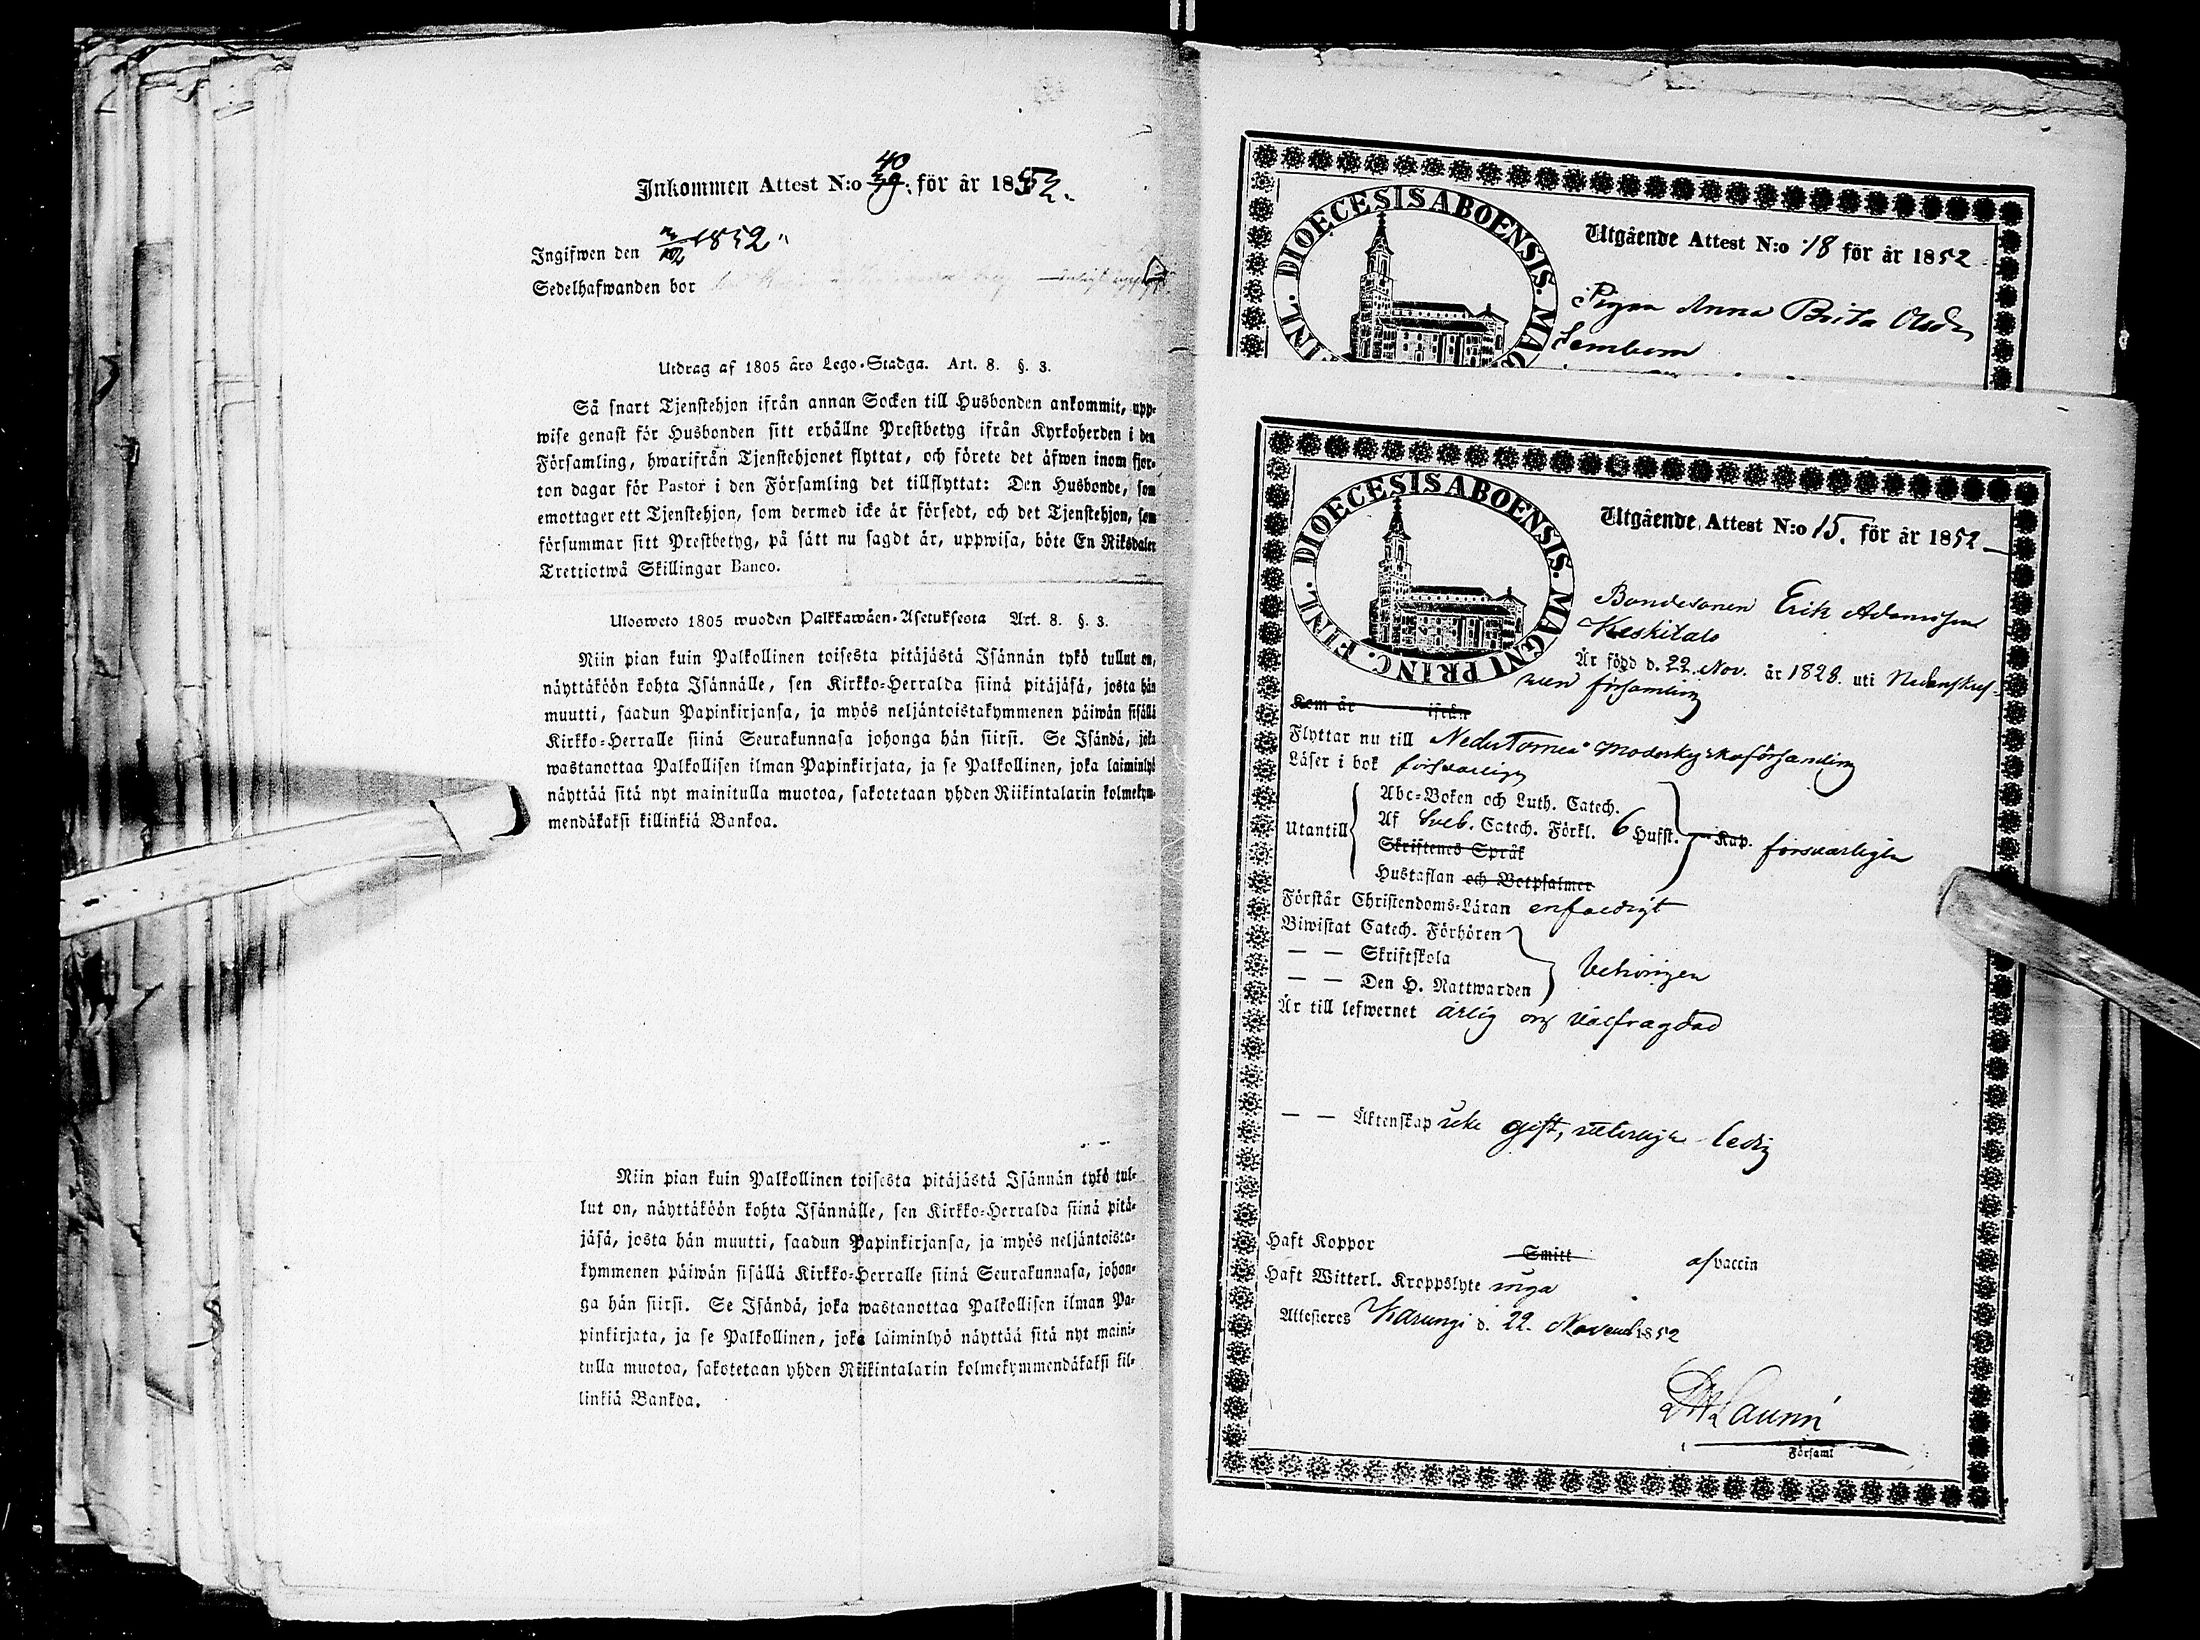 Inkommen Attest N:o 40 39. för år 1852.
Ingifwen den 1852
Sedelhafwanden bor
Utdrag af 1805 års Lego-Stadga. Art. 8. §. 3.
Så snart Tjenstehjon ifrån annan Socken till Husbonden ankommit, upp-
wise genast för Husbonden sitt erhållne Prestbetyg ifrån Kyrkoherden i den
Församling, hwarifrån Tjenstehjonet flyttat, och förete det äfwen inom fjor-
ton dagar för Pastor i den Församling det tillflyttat: Den Husbonde, som
emottager ett Tjenstehjon, som dermed icke är försedt, och det Tjenstehjon, som
försummar sitt Prestbetyg, på sätt nu sagdt är, uppwisa, böte En Riksdaler
Trettiotwå Skillingar Banco.
Ulosweto 1805 wuoden Palkkawäen-Asetuksesta Art. 8. §. 3.
Niin pian kuin Palkollinen toisesta pitäjästä Isännän tykö tullut on,
näyttäköön kohta Isännälle, sen Kirkko-Herralda siinä pitäjäsä, josta hän
muutti, saadun Papinkirjansa, ja myös neljäntoistakymmenen päiwän sisällä
Kirkko-Herralle siinä Seurakunnasa johonga hän siirsi. Se Isändä, joka
wastanottaa Palkollisen ilman Papinkirjata, ja se Palkollinen, joka laiminlyö
näyttää sitä nyt mainitulla muotoa, sakotetaan yhden Riikintalarin kolmekym-
mendäkaksi killinkiä Bankoa.
Niin pian kuin Palkollinen toisesta pitäjästä Isännän tykö tul-
lut on, näyttäköön kohta Isännälle, sen Kirkko-Herralda siinä pitä-
jäsä, josta hän muutti, saadun Papinkirjansa, ja myös neljäntoista-
kymmenen päiwän sisällä Kirkko-Herralle siinä Seurakunnasa, johon-
ga hän siirsi. Se Isändä, joka wastanottaa Palkollisen ilman Pa-
pinkirjata, ja se Palkollinen, joka laiminlyö näyttää sitä nyt maini-
tulla muotoa, sakotetaan yhden Riikintalarin kolmekymmendäkaksi kil-
linkiä Bankoa.
DIOECESIS ABOENSIS. MAG INL.
Utgående Attest N:o 18 för år 1852
Pigan Anna Brita Olsdr
Lembom
DIOECESIS ABOENSIS. MAGNI PRINC. FINL.
Utgående Attest N:o 15. för år 1852
Bondesonen Erik Adamsson
Keskitalo
Är född d. 22 Nov. år 1828. uti
församling
Kom år ifrån
Flyttar nu till Neder Torneå moderkyrkoförsamling
Läser i bok försvarligen
Utantill
Abc-Boken och Luth. Catech.
Af Sveb. Catech. Förkl. 6 Hufst. Kap. försvarligen
Skriftenes Språk
Hustaflan och Botpsalmer
Förstår Christendoms-Läran enfaldigt
Biwistat Catech. Förhören
— — Skriftskola behörigen
— — Den H. Nattwarden
Är till lefwernet ärlig och välfrägdad
— — Äktenskap icke gift, ledig
Haft Koppor Smitt af vaccin
Haft Witterl. Kroppslyte inga
Attesteres Karungi d. 22. Novemb 1852
Församl